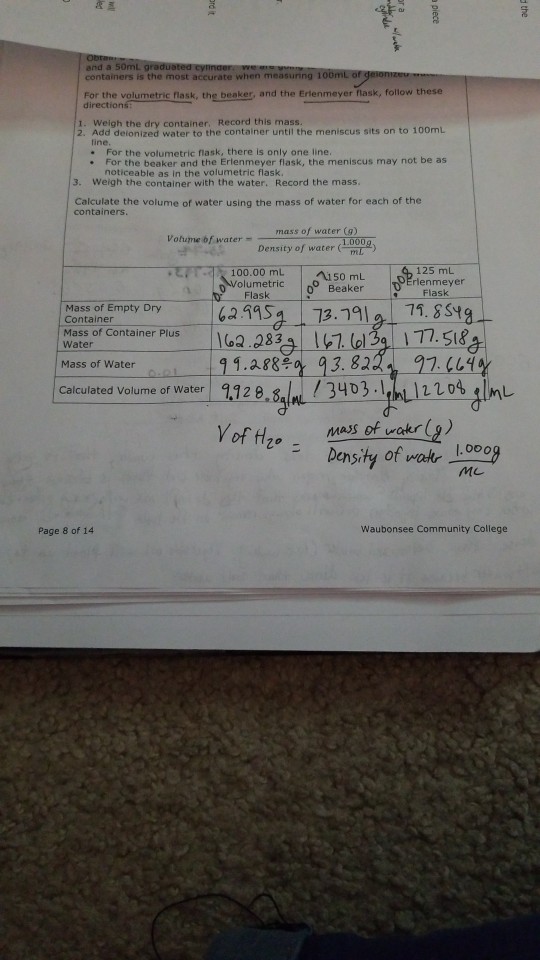 d the
a piece
or a
w/ water
cylinder
will
and a 50mL graduated cylinder. We are
containers is the most accurate when measuring 100mL of deionized
For the volumetric flask, the beaker, and the Erlenmeyer flask, follow these
directions:
1. Weigh the dry container. Record this mass.
2. Add deionized water to the container until the meniscus sits on to 100mL
line.
• For the volumetric flask, there is only one line.
• For the beaker and the Erlenmeyer flask, the meniscus may not be as
noticeable as in the volumetric flask.
3. Weigh the container with the water. Record the mass.
Calculate the volume of water using the mass of water for each of the
containers.
Volume of water = mass of water (g)
Density of water (1.000g
mL)
0.01 100.00 mL .007 150 mL .008 125 mL
Volumetric Beaker Erlenmeyer
Flask Flask
Mass of Empty Dry
Container 62.995g 73.791g 79.854g
Mass of Container Plus
Water 162.283g 167.613g 177.518g
Mass of Water 99.288g 93.822g 97.664g
Calculated Volume of Water 9,928.8g/mL 13403.1g/mL 12208 g/mL
V of H2O = mass of water (g)
Density of water 1.000g
mL
Page 8 of 14
Waubonsee Community College